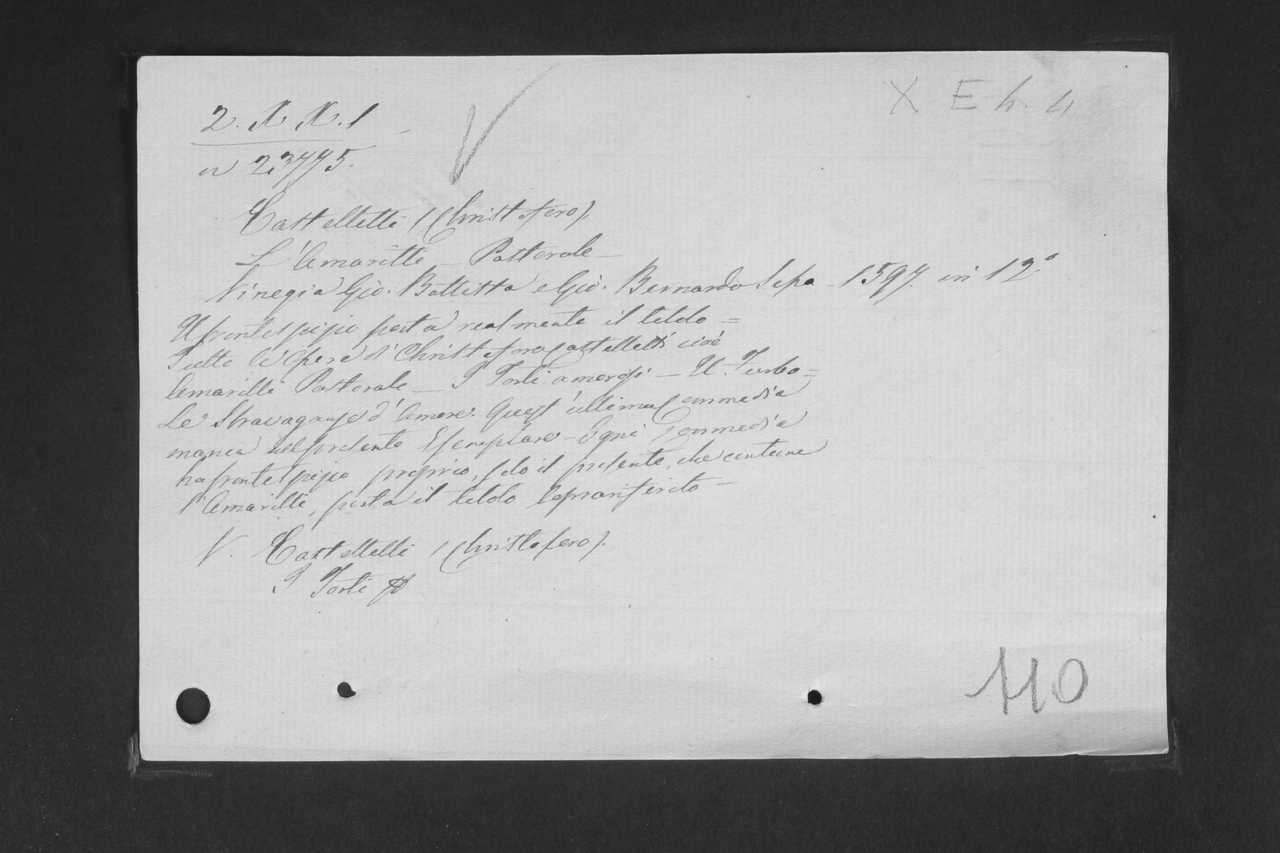 X E h. 4
2. X. X. 1
n 23775.
Castelletti (Christofero).
L'Amarilli - Pastorale -
Vinegia Gio. Battista e Gio. Bernardo Sepa - 1597. in 12º
Il frontespizio porta realmente il titolo =
Tutte l'opere di Christoforo Castelletti cioè
Amarilli Pastorale - I Torti amorosi - Il Furbo =
Le Stravaganze d'Amore. Quest'ultima Commedia
manca nel presente Esemplare - Ogni Commedia
ha frontespizio proprio, solo il presente, che contiene
l'Amarilli, porta il titolo sopra riferito -
V. Castelletti (Christofero).
I Torti
110